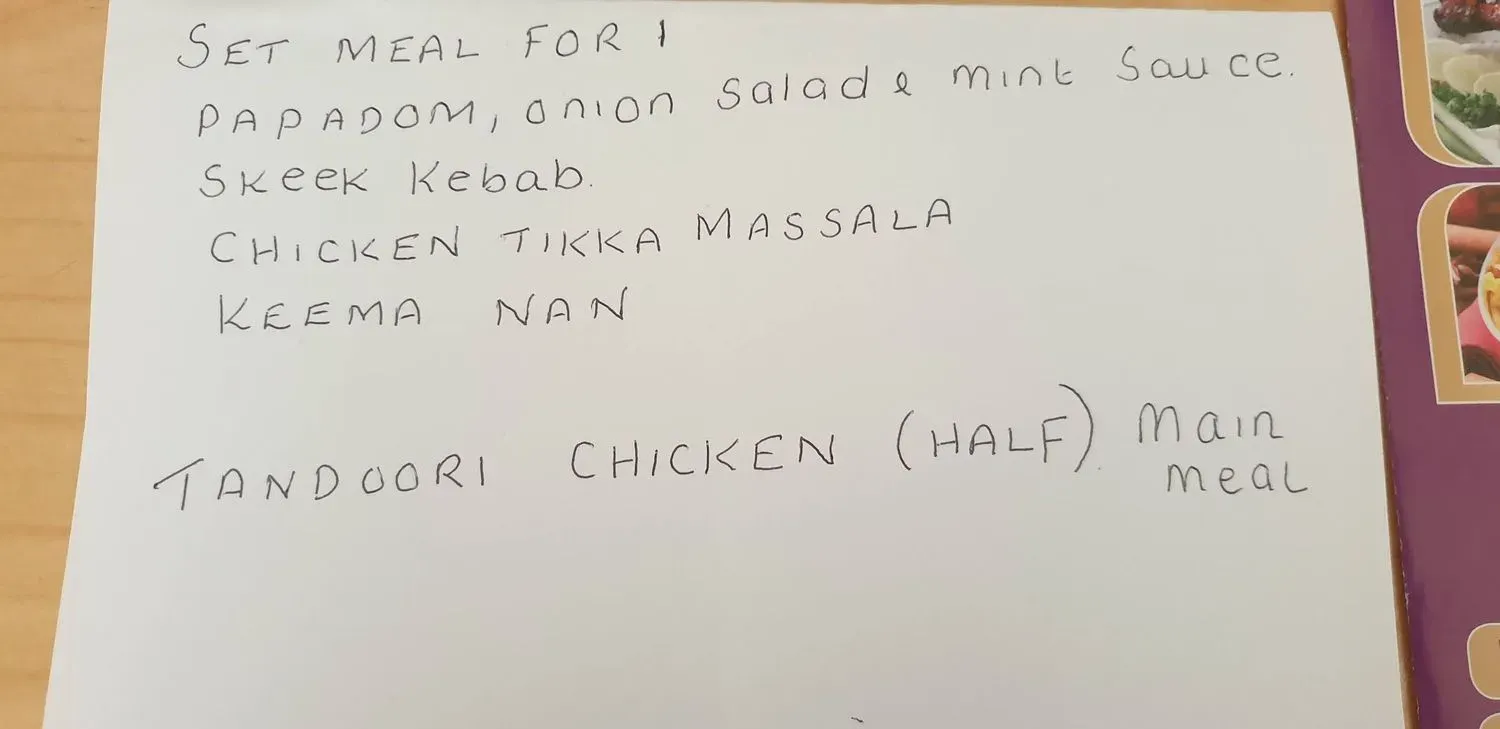 SET MEAL FOR 1
PAPADOM, onion Salad & mint Sauce.
SKEEK Kebab.
CHICKEN TIKKA MASSALA
KEEMA NAN
TANDOORI CHICKEN (HALF). Main
meal